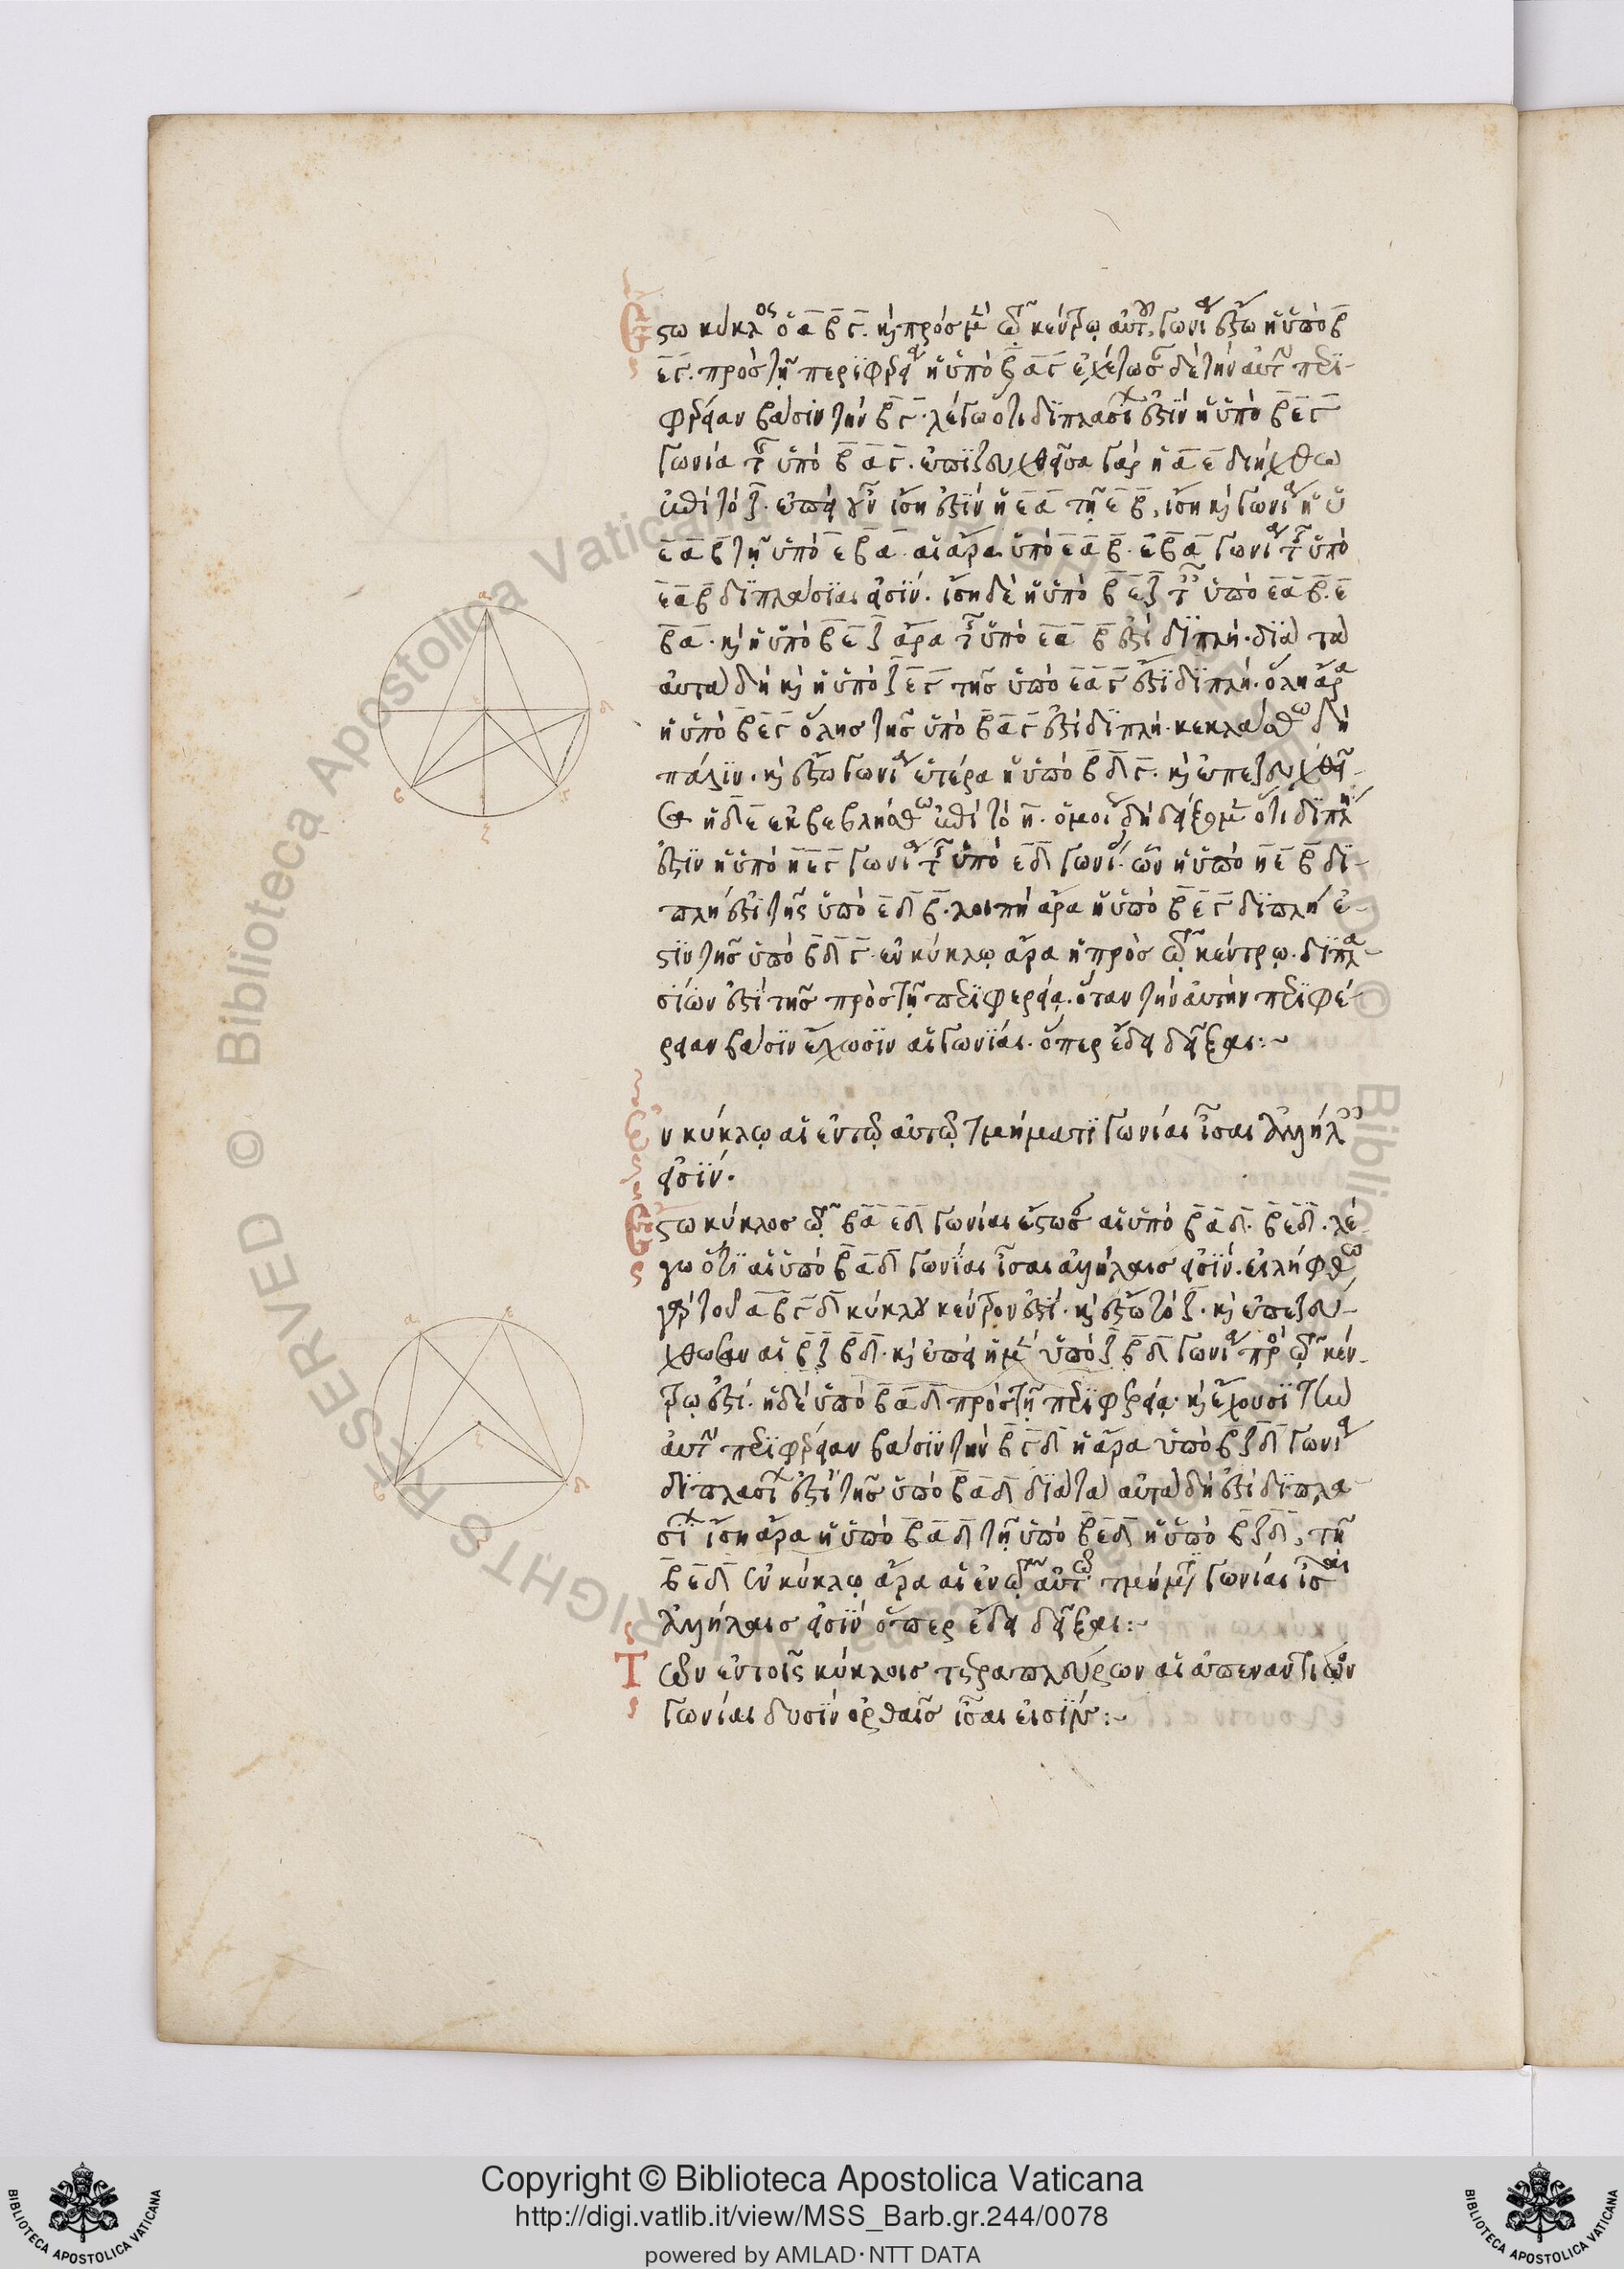 Ἔστω κύκλος ὁ α β γ. καὶ πρὸς μὲν τῷ κέντρῳ αὐτοῦ, γωνία ἔστω ἡ ὑπὸ β
ε γ. πρὸς τῇ περιφερείᾳ ἡ ὑπὸ β α γ ἐχέτωσαν δὲ τὴν αὐτὴν περι-
φέρειαν βάσιν τὴν β γ. λέγω ὅτι διπλασίων ἐστὶν ἡ ὑπὸ β ε γ
γωνία τῆς ὑπὸ β α γ. ἐπιζευχθεῖσα γὰρ ἡ α ε διήχθω
ἐπὶ τὸ ζ. ἐπεὶ οὖν ἴση ἐστὶν ἡ ε α τῇ ε β, ἴση καὶ γωνία ἡ ὑ
ε α β τῇ ὑπὸ ε β α. αἱ ἄρα ὑπὸ ε α β. ε β α γωνίαι τῆς ὑπὸ
ε α β διπλάσιαι εἰσίν. ἴση δὲ ἡ ὑπὸ β ε ζ τῆς ὑπὸ ε α β. ε
β α. καὶ ἡ ὑπὸ β ε ζ ἄρα τῆς ὑπὸ ε α β ἐστὶ διπλῆ. διὰ τὰ
αὐτὰ δὴ καὶ ἡ ὑπὸ ζ ε γ τῆς ὑπὸ ε α γ ἐστὶ διπλῆ. ὅλη ἄρα
ἡ ὑπὸ β ε γ ὅλης τῆς ὑπὸ β α γ ἐστὶ διπλῆ. κεκλάσθω δὴ
πάλιν. καὶ ἔστω γωνία ἑτέρα ἡ ὑπὸ β δ γ. καὶ ἐπεζευχθεῖ-
σα ἡ δ ε ἐκβεβλήσθω ἐπὶ τὸ η. ὁμοίως δὴ δείξομεν ὅτι διπλῆ
ἐστὶν ἡ ὑπὸ η ε γ γωνία τῆς ὑπὸ ε δ γωνίας. ὧν ἡ ὑπὸ η ε β δι-
πλῆ ἐστὶ τῆς ὑπὸ ε δ β. λοιπὴ ἄρα ἡ ὑπὸ β ε γ διπλῆ ἐ-
στὶν τῆς ὑπὸ β δ γ. ἐν κύκλῳ ἄρα ἡ πρὸς τῷ κέντρῳ. διπλα-
σίων ἐστὶ τῆς πρὸς τῇ περιφερείᾳ. ὅταν τὴν αὐτὴν περιφέ-
ρειαν βάσιν ἔχωσιν αἱ γωνίαι. ὅπερ ἔδει δεῖξαι:~
Ἐν κύκλῳ αἱ ἐν τῷ αὐτῷ τμήματι γωνίαι ἴσαι ἀλλήλαις
εἰσίν.
Ἔστω κύκλος ὁ α β γ δ γωνίαι ἔστωσαν αἱ ὑπὸ β α δ. β ε δ. λέ-
γω ὅτι αἱ ὑπὸ β α δ γωνίαι ἴσαι ἀλλήλαις εἰσίν. εἰλήφθω
γὰρ τοῦ α β γ δ κύκλου κέντρον ἐστί. καὶ ἔστω τὸ ζ. καὶ ἐπεζεύ-
χθωσαν αἱ β ζ β δ. καὶ ἐπεὶ ἡ μὲν ὑπὸ ζ β δ γωνία πρὸς τῷ κέν-
τρῳ ἐστί. ἡ δὲ ὑπὸ β α δ πρὸς τῇ περιφερείᾳ. καὶ ἔχουσι τὴν
αὐτὴν περιφέρειαν βάσιν τὴν β γ δ ἡ ἄρα ὑπὸ β ζ δ γωνία
διπλασίων ἐστὶ τῆς ὑπὸ β α δ διὰ τὰ αὐτὰ δὴ ἐστὶ διπλα-
σίων ἴση ἄρα ἡ ὑπὸ β α δ τῇ ὑπὸ β ε δ ἡ ὑπὸ β ζ δ, τῇ
β ε δ ἐν κύκλῳ ἄρα αἱ ἐν τῷ αὐτῷ τμήματι γωνίαι ἴσαι
ἀλλήλαις εἰσίν ὅπερ ἔδει δεῖξαι:~
Τῶν ἐν τοῖς κύκλοις τετραπλεύρων αἱ ἀπεναντίον
γωνίαι δυσὶν ὀρθαῖς ἴσαι εἰσίν:~
Copyright © Biblioteca Apostolica Vaticana
http://digi.vatlib.it/view/MSS_Barb.gr.244/0078
powered by AMLAD·NTT DATA